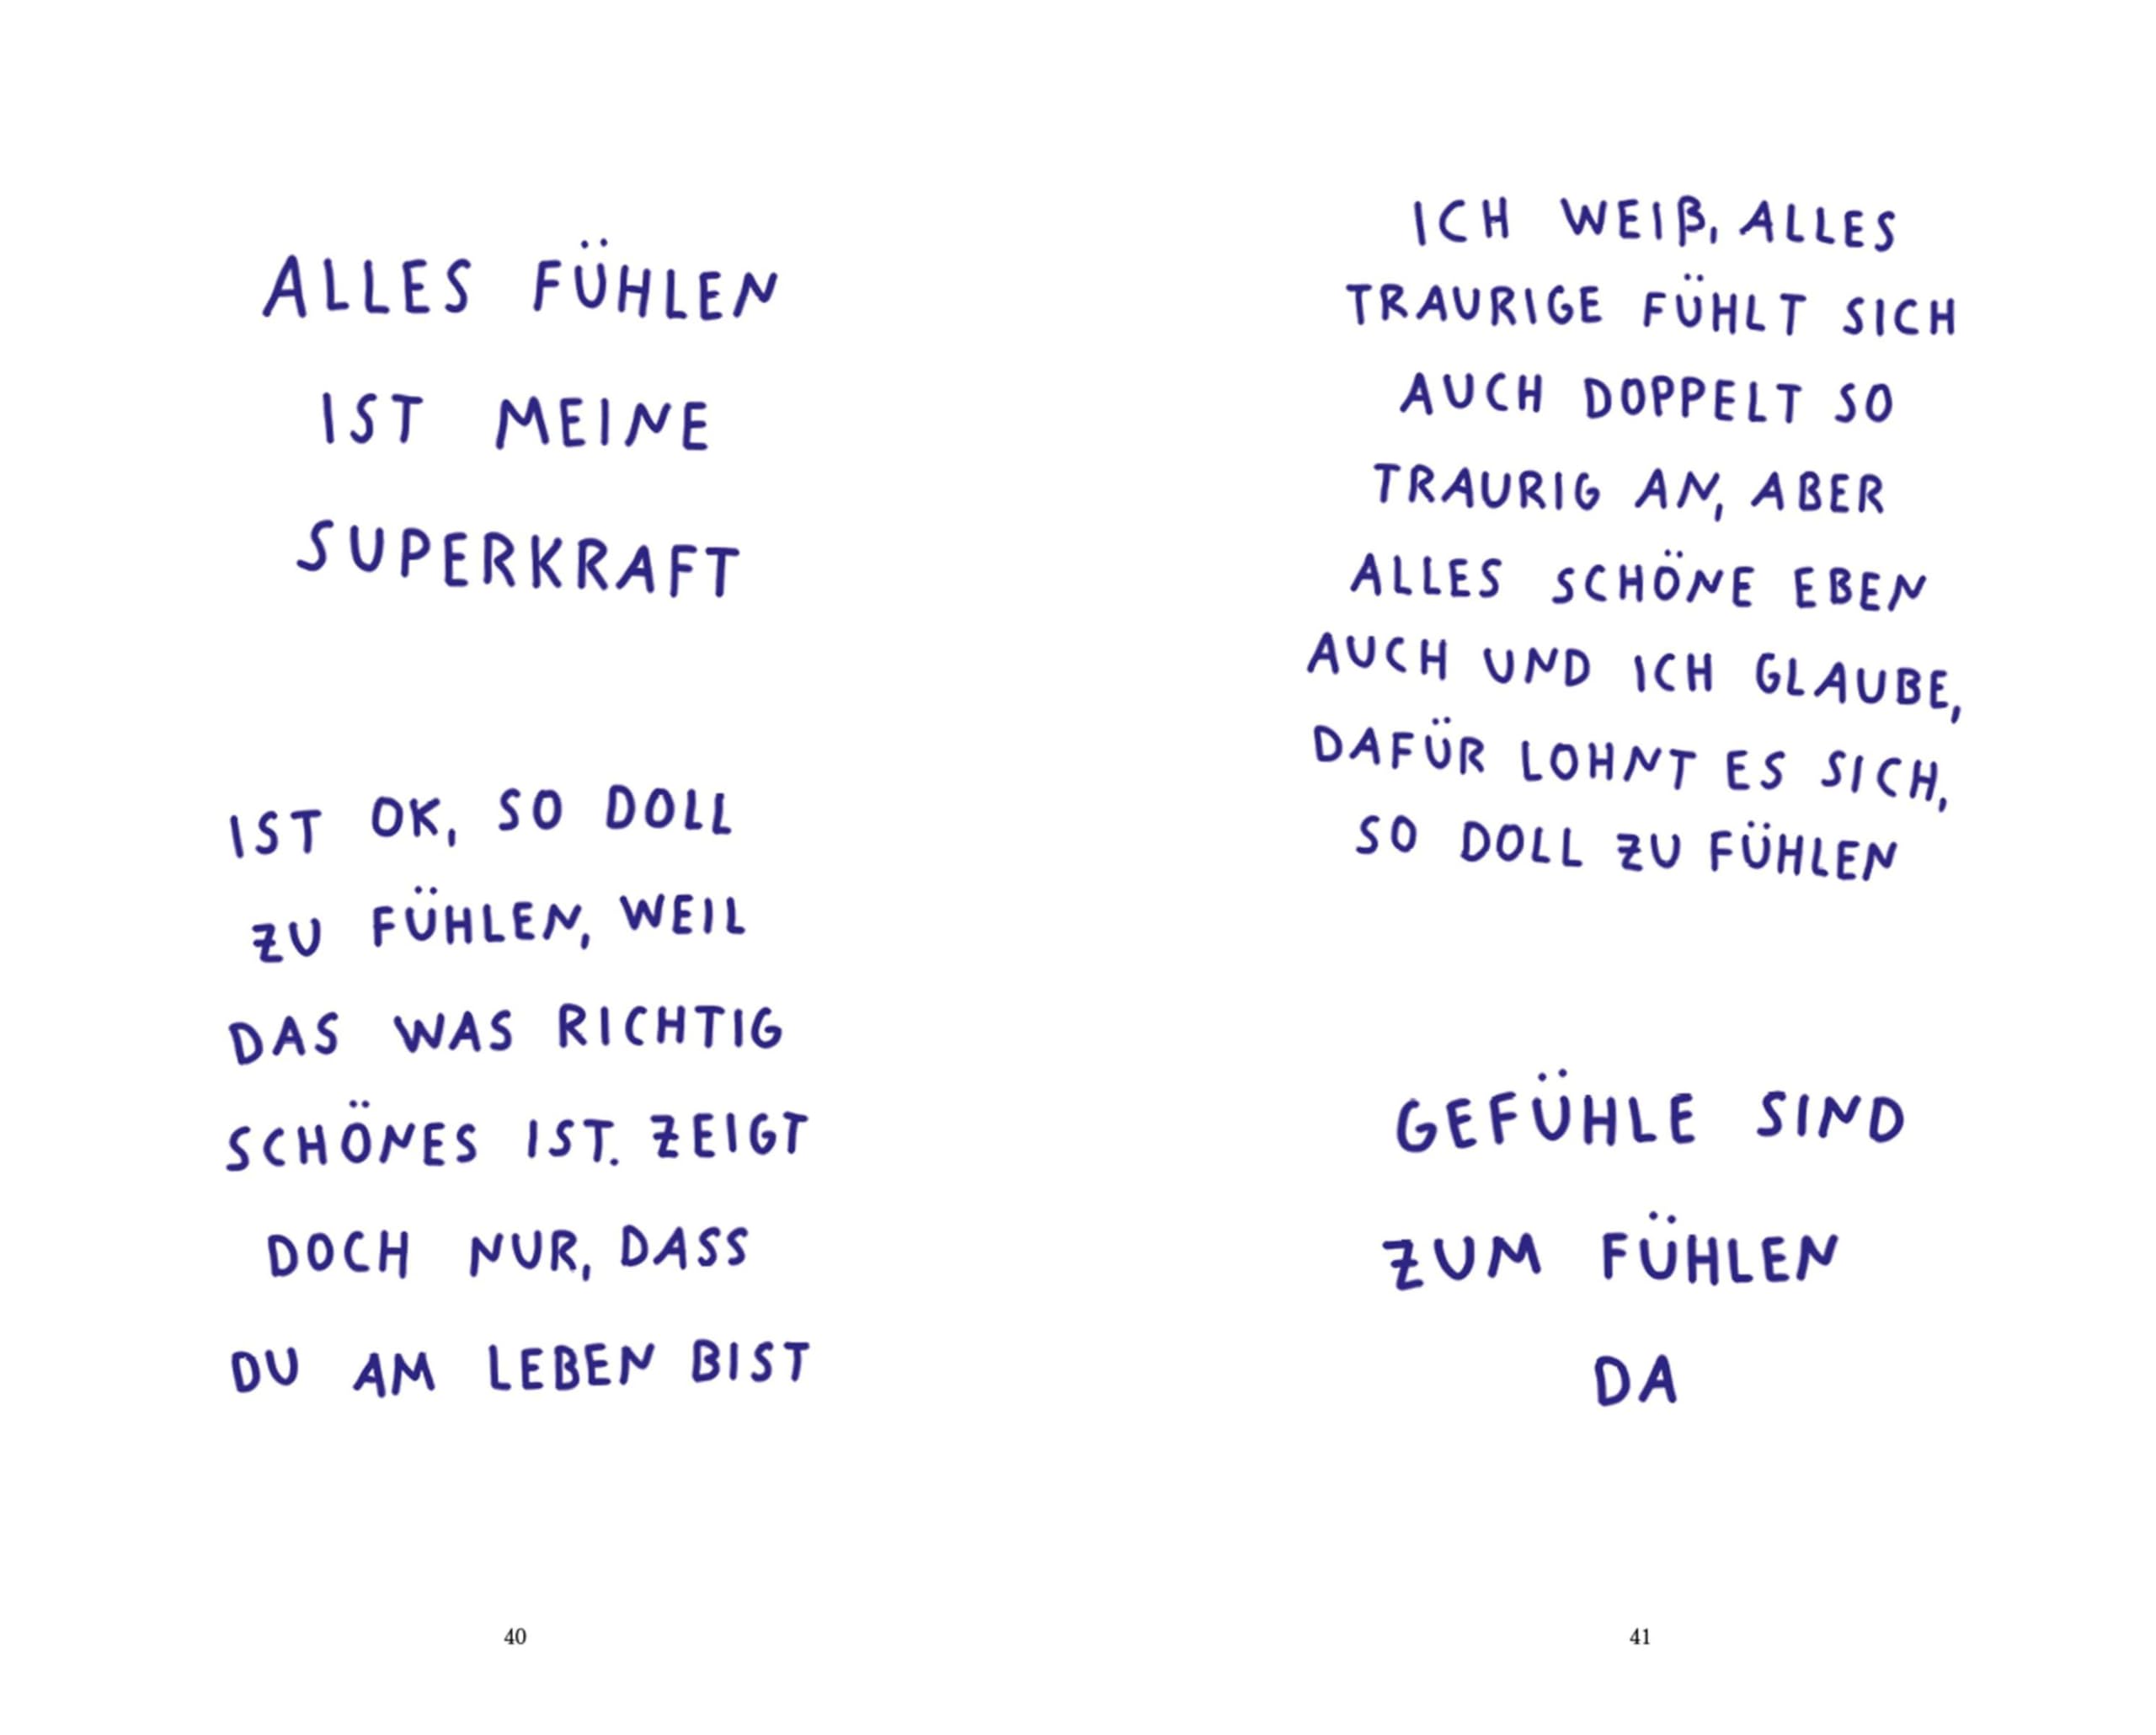 ALLES FÜHLEN
IST MEINE
SUPERKRAFT
IST OK, SO DOLL
ZU FÜHLEN, WEIL
DAS WAS RICHTIG
SCHÖNES IST. ZEIGT
DOCH NUR, DASS
DU AM LEBEN BIST
40
ICH WEIß, ALLES
TRAURIGE FÜHLT SICH
AUCH DOPPELT SO
TRAURIG AN, ABER
ALLES SCHÖNE EBEN
AUCH UND ICH GLAUBE,
DAFÜR LOHNT ES SICH,
SO DOLL ZU FÜHLEN
GEFÜHLE SIND
ZUM FÜHLEN
DA
41